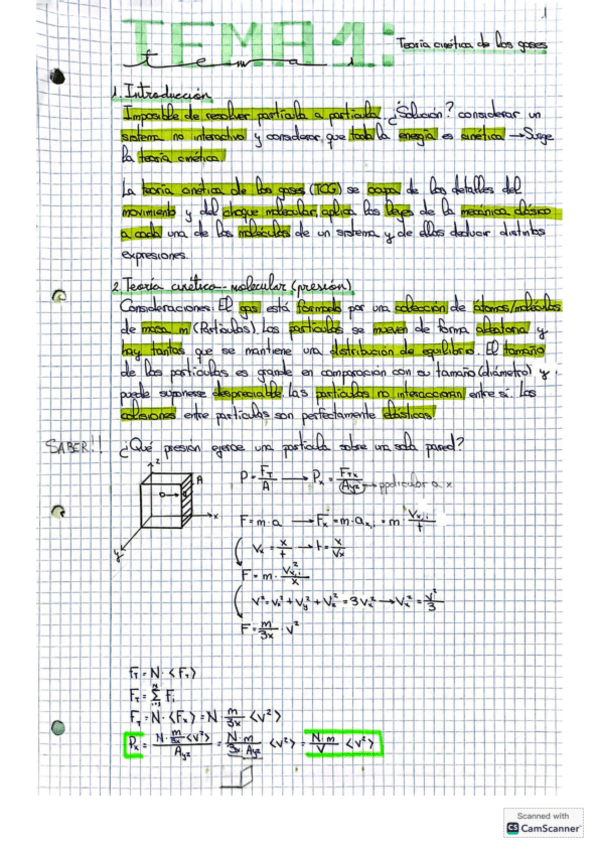 1
TEMA 1:
tema 1
Teoría cinética de los gases
1. Introducción
Imposible de resolver partícula a partícula. ¿Solución? considerar un
sistema no interactivo y considerar que toda la energía es cinética → Surge
la teoría cinética.
La teoría cinética de los gases (TCG) se ocupa de los detalles del
movimiento y del choque molecular, aplica las leyes de la mecánica clásica
a cada una de las moléculas de un sistema y de ellas deducir distintas
expresiones.
2. Teoría cinético-molecular (presión)
Consideraciones: El gas está formado por una colección de átomos/moléculas
de masa m (Partículas). Las partículas se mueven de forma aleatoria y
hay tantas que se mantiene una distribución de equilibrio. El tamaño
de las partículas es grande en comparación con su tamaño (diámetro) y
puede suponerse despreciable. Las partículas no interaccionan entre sí. Las
colisiones entre partículas son perfectamente elásticas.
SABER!! ¿Qué presión ejerce una partícula sobre una sola pared?
z A
x
y
P = F_T/A → P_x = F_Tx/A_yz → ppdicular a x
F = m·a → F_x = m·a_x,i = m · V_x,i/t
V_x = x/t → t = x/V_x
F = m · V_x,i²/x
V² = V_x² + V_y² + V_z² = 3V_x² → V_x² = V²/3
F = m/3x · V²
F_T = N · <F_i>
F_T = Σ_{i=1}^N F_i
F_T = N · <F_x> = N m/3x <V²>
P_x = N · m/3x <V²>/A_yz = N·m/3x A_yz <V²> = N·m/V <V²>
Scanned with
CS CamScanner